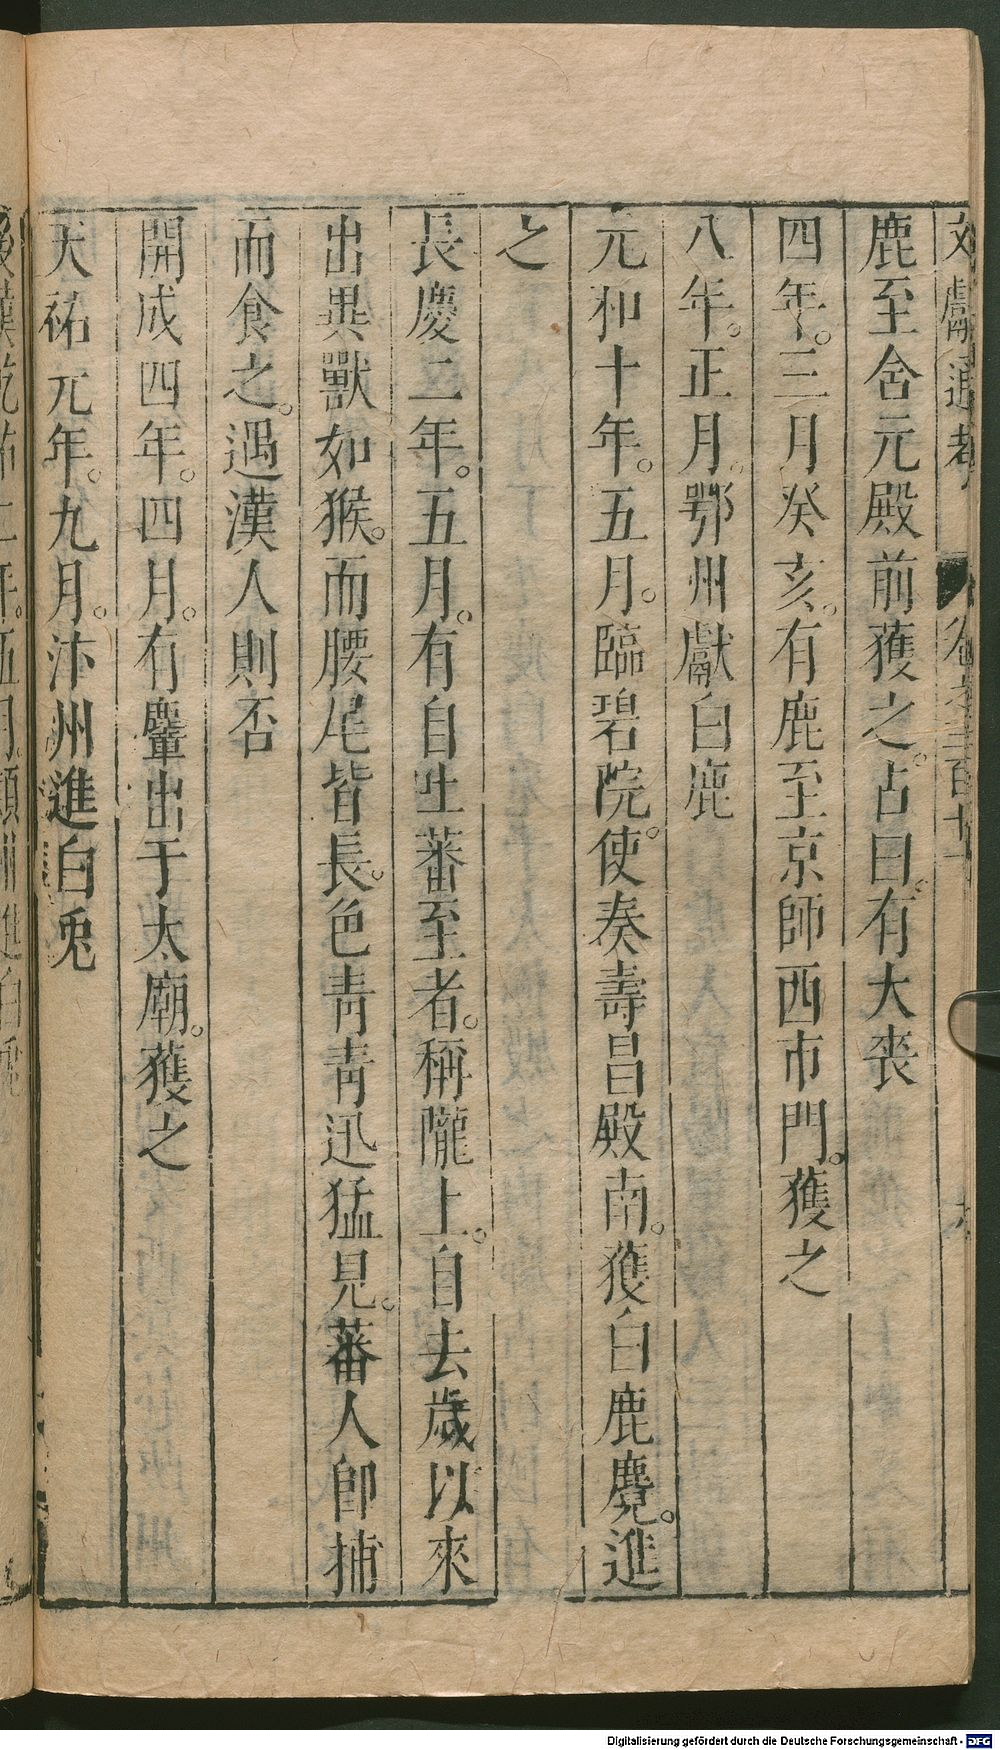 文獻通考 卷之三百十一
鹿至含元殿前獲之。占曰。有大喪
四年。三月癸亥。有鹿至京師西市門。獲之
八年。正月。鄂州獻白鹿
元和十年。五月。臨碧院。使奏壽昌殿南。獲白鹿麑。進
之
長慶二年。五月。有自生蕃至者。稱隴上。自去歲以來
出異獸如猴。而腰尾皆長。色青靑迅猛見。蕃人卽捕
而食之。遇漢人則否
開成四年。四月。有麞出于太廟。獲之
天祐元年。九月。汴州進白兎
後漢乾祐二年。五月。潁州進白兎
Digitalisierung gefördert durch die Deutsche Forschungsgemeinschaft - DFG